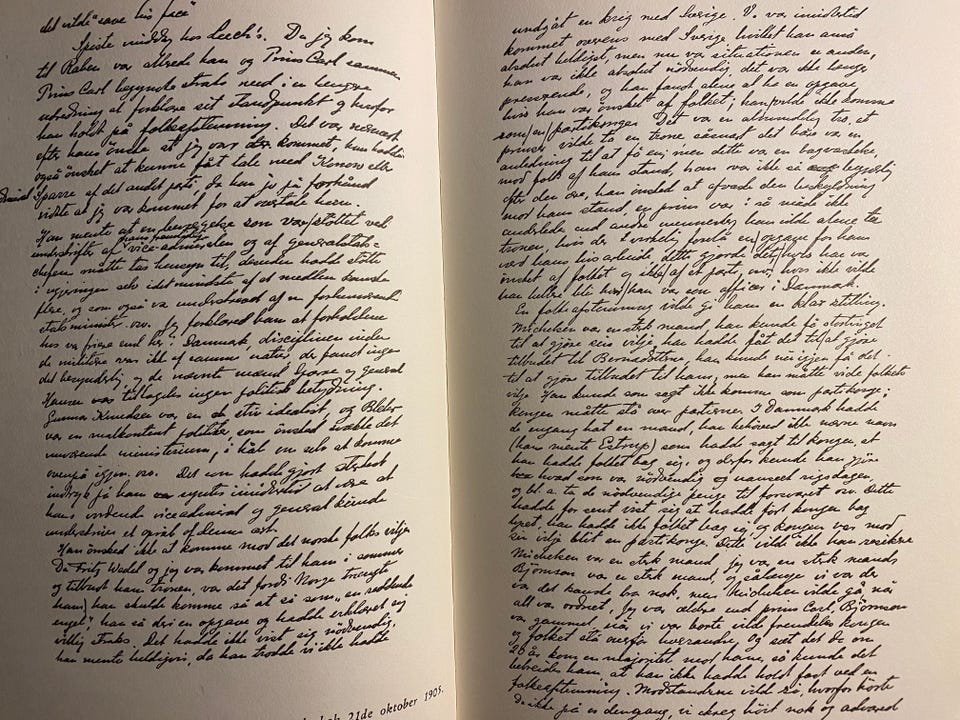 det vilde "save his face"
Spiste middag hos Leech's. Da jeg kom
til Raben var allrede han og Prins Carl sammen
Prins Carl begynte straks med i en længre
udredning at forklare sit standpunkt og hvorfor
han holdt på folkeafstemning. Det var nærmest
efter hans ønske at jeg var der kommet, han hadde
også ønsket at kunne fåt tale med Konow eller
Sparre af det andet parti, da han jo på forhånd
vidste at jeg var kommet for at overtale ham.
Han mente at en bevægelse som var støttet ved
underskrift af vice-admiralen og af generalstabs-
chefen måtte tas hensyn til, desuden hadde dette
i regjeringen selv idetmindste et medlem kanske
flere, og som også var understøttet af en forhenværende
statsminister osv. Jeg forklared ham at forholdene
hos os var friere end her i Danmark, disciplinen under
de militære var ikke af samme natur, der fandt ingen
det besynderlig, og de nævnte mænd Sparre og general
Hansen var tillagt en ingen politisk betydning.
Gunnar Knudsen var en stiv idealist, og Blehr
var en malkontent politiker, som ønsked at vælte det
nuværende ministerium, i håb om selv at komme
ovenpå igjen, osv. Det som hadde gjort sterkest
indtryk på ham var nyntes imidlertid at være at
hans vordende viceadmiral og general kunde
underskrive et opråb af denne art.
Han ønsked ikke at komme mod det norske folks vilje
Da Fritz Wedel og jeg var kommet til ham i sommer
og tilbudt ham tronen, var det fordi Norge trængte
ham, han skulde komme så at si som "en reddende
engel", han så deri en opgave og hadde erklæret sig
villig straks. Det hadde ikke vist sig nødvendig,
han mente heldigvis, da han trodde vi ikke hadde
21de oktober 1905.
undgåt en krig med Sverige. Vi var imidlertid
kommet overens med Sverige hvilket han anså
absolut heldigst, men nu var situationen en anden,
han var ikke absolut nødvendig, det var ikke længe
pressende, og han fandt alene at ha en opgave,
hvis han var ønsket af folket; han vilde ikke komme
som en partikonge. Det var en almindelig tro, at
prinser vilde ta en trone såsnart det bare var en
anledning til at få en; men dette var en bagvaskelse
mod folk af hans stand, han var ikke så begjærlig
efter den ære, han ønsked at afvæde den beskyldning
mod hans stand, en prins var i så måde ikke
anderledes end andre mennesker, han vilde alene ta
tronen, hvis der i virkelig forelå en opgave for ham
ved hans his arbeide, dette gjorde det, hvis han var
ønsket af folket og ikke af et parti, men hvis ikke vilde
han hellere bli hvor han var som officer i Danmark.
En folkeafstemning vilde gi ham en klar stilling.
Michelsen var en sterk mand, han kunde få stortinget
til at gjøre sin vilje, han hadde fåt det til at gjøre
tilbudet til Bernadotterne, han kunde nu igjen få det
til at gjøre tilbudet til ham, men han måtte vide folkets
vilje. Han kunde som sagt ikke komme som partikonge,
kongen måtte stå over partierne. I Danmark hadde
de engang hat en mand, han behøved ikke nævne navn
(han mente Estrup) som hadde sagt til kongen, at
han hadde folket bag sig, og derfor kunde han gjøre
hvad som var nødvendig og uanseet rigsdagen,
og bl. a. ta de nødvendige penge til forsvaret osv. Dette
hadde for sent vist sig at hadde fort kongen bag
lyset, han hadde ikke folket bag sig, og kongen var mod
sin vilje blit en partikonge. Dette vilde ikke han risikere
Michelsen var en sterk mand, jeg var en sterk mand,
Bjørnson var en sterk mand, og sålænge vi var der
var det kanske bra nok, men Michelsen vilde gå når
alt var ordnet, jeg var ældre end prins Carl, Bjørnson
var gammel, når vi var borte vilde fremdeles kongen
og folket stå overfor hverandre, og sæt det da om
20 år kom en majoritet mod ham, så kunde det
bebreides ham, at han ikke hadde holdt fast ved en
folkeafstemning. Modstanderne vilde si, hvorfor hørte
De ikke på os dengang, vi skreg høit nok og advared